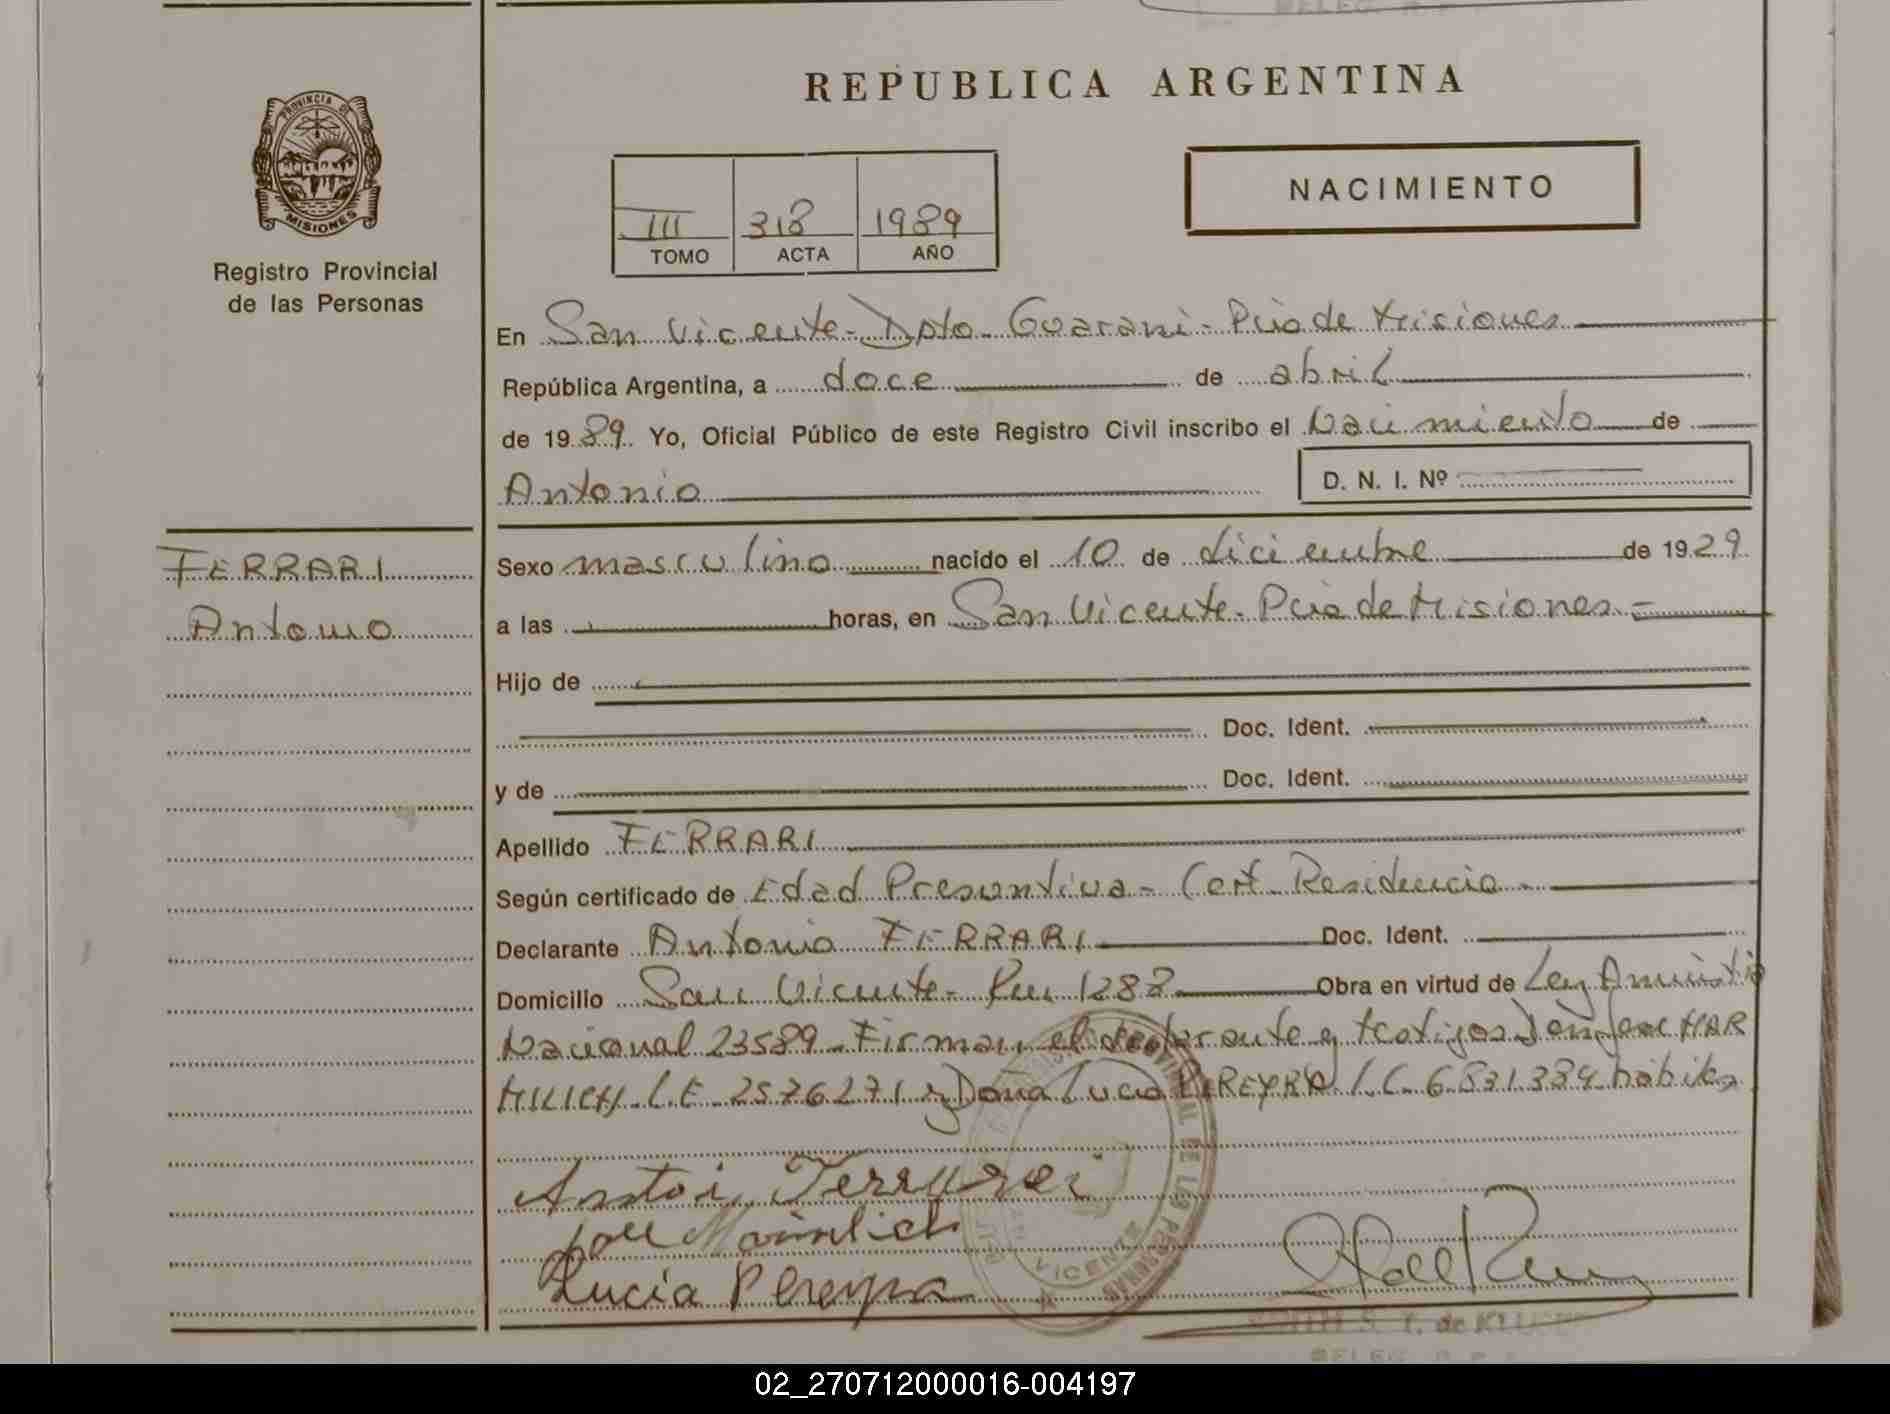 REPUBLICA ARGENTINA
PROVINCIA DE
MISIONES
Registro Provincial
de las Personas
NACIMIENTO
III 318 1989
TOMO ACTA AÑO
En San Vicente - Dpto - Guarani - Pcia de Misiones
República Argentina, a doce de abril
de 1989. Yo, Oficial Público de este Registro Civil inscribo el Nacimiento de
Antonio
D. N. I. Nº
FERRARI
Antonio
Sexo masculino nacido el 10 de diciembre de 1929
a las horas, en San Vicente - Pcia de Misiones -
Hijo de
Doc. Ident.
y de Doc. Ident.
Apellido FERRARI
Según certificado de Edad Presuntiva - Cert. Residencia -
Declarante Antonio FERRARI Doc. Ident.
Domicilio San Vicente - 1288 Obra en virtud de Ley Amnistia
Nacional 23589 - Firman el declarante y testigos Don MAR
MILICH L.E. 2576271 y Doña Lucia PEREYRA L.C. 6831384 habiles
VICENTE
Lucia Pereyra
02_270712000016-004197